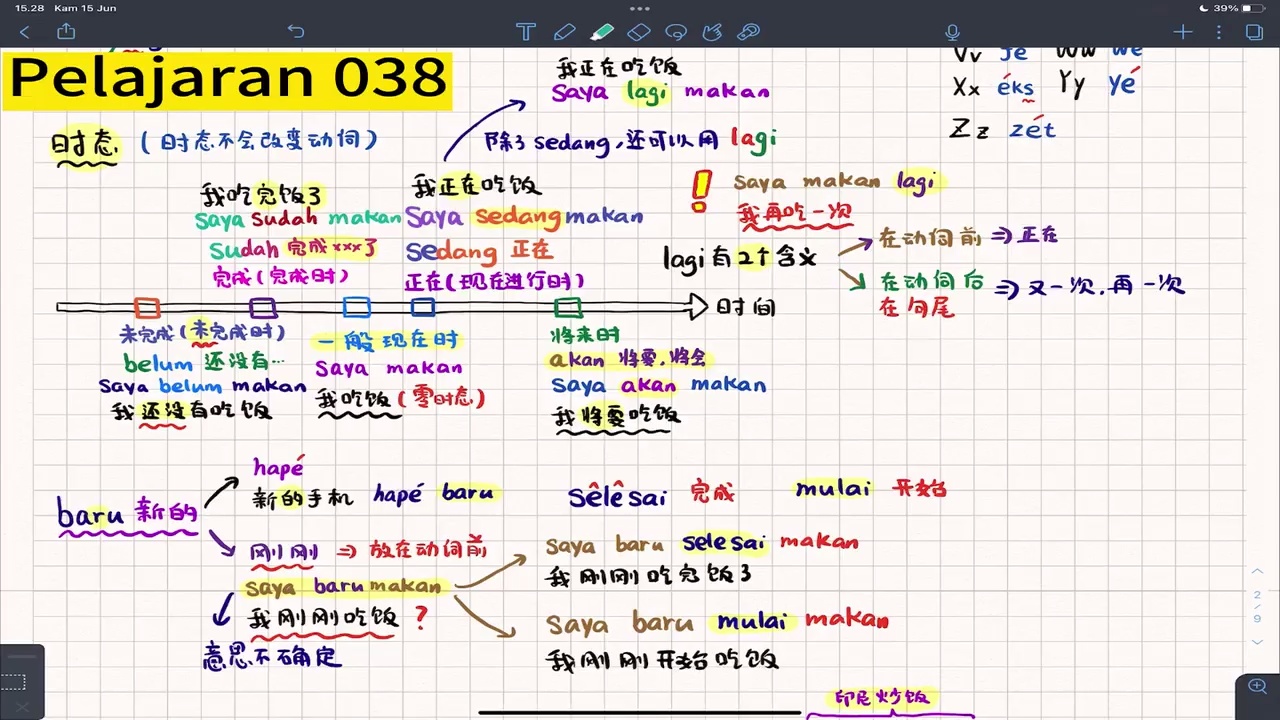 15.28 Kam 15 Jun
39%
Pelajaran 038
Vv Jé Ww wé
Xx éks Yy yé
Zz zét
时态 (时态不会改变动词)
我正在吃饭
Saya lagi makan
除了sedang,还可以用 lagi
我吃完饭了
Saya sudah makan
Sudah 完成xxx了
完成(完成时)
我正在吃饭
Saya sedang makan
sedang 正在
正在(现在进行时)
! Saya makan lagi
我再吃一次
lagi有2个含义
在动词前 => 正在
在动词后 => 又一次,再一次
在句尾
时间
未完成(未完成时)
belum 还没有…
Saya belum makan
我还没有吃饭
一般现在时
Saya makan
我吃饭(零时态)
将来时
akan 将要,将会
Saya akan makan
我将要吃饭
baru 新的
hapé
新的手机 hapé baru
刚刚 => 放在动词前
saya baru makan
我刚刚吃饭?
意思不确定
sêlêsai 完成 mulai 开始
Saya baru selesai makan
我刚刚吃完饭了
Saya baru mulai makan
我刚刚开始吃饭
2/9
印尼炒饭